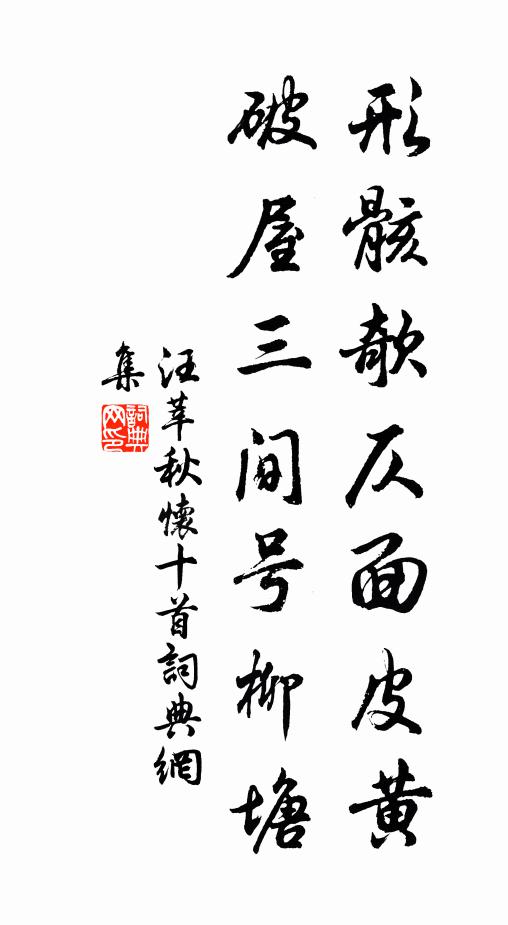 形骸欹仄面皮黄
破屋三间号柳塘
汪莘秋懷十首詞典網
集
詞典网印